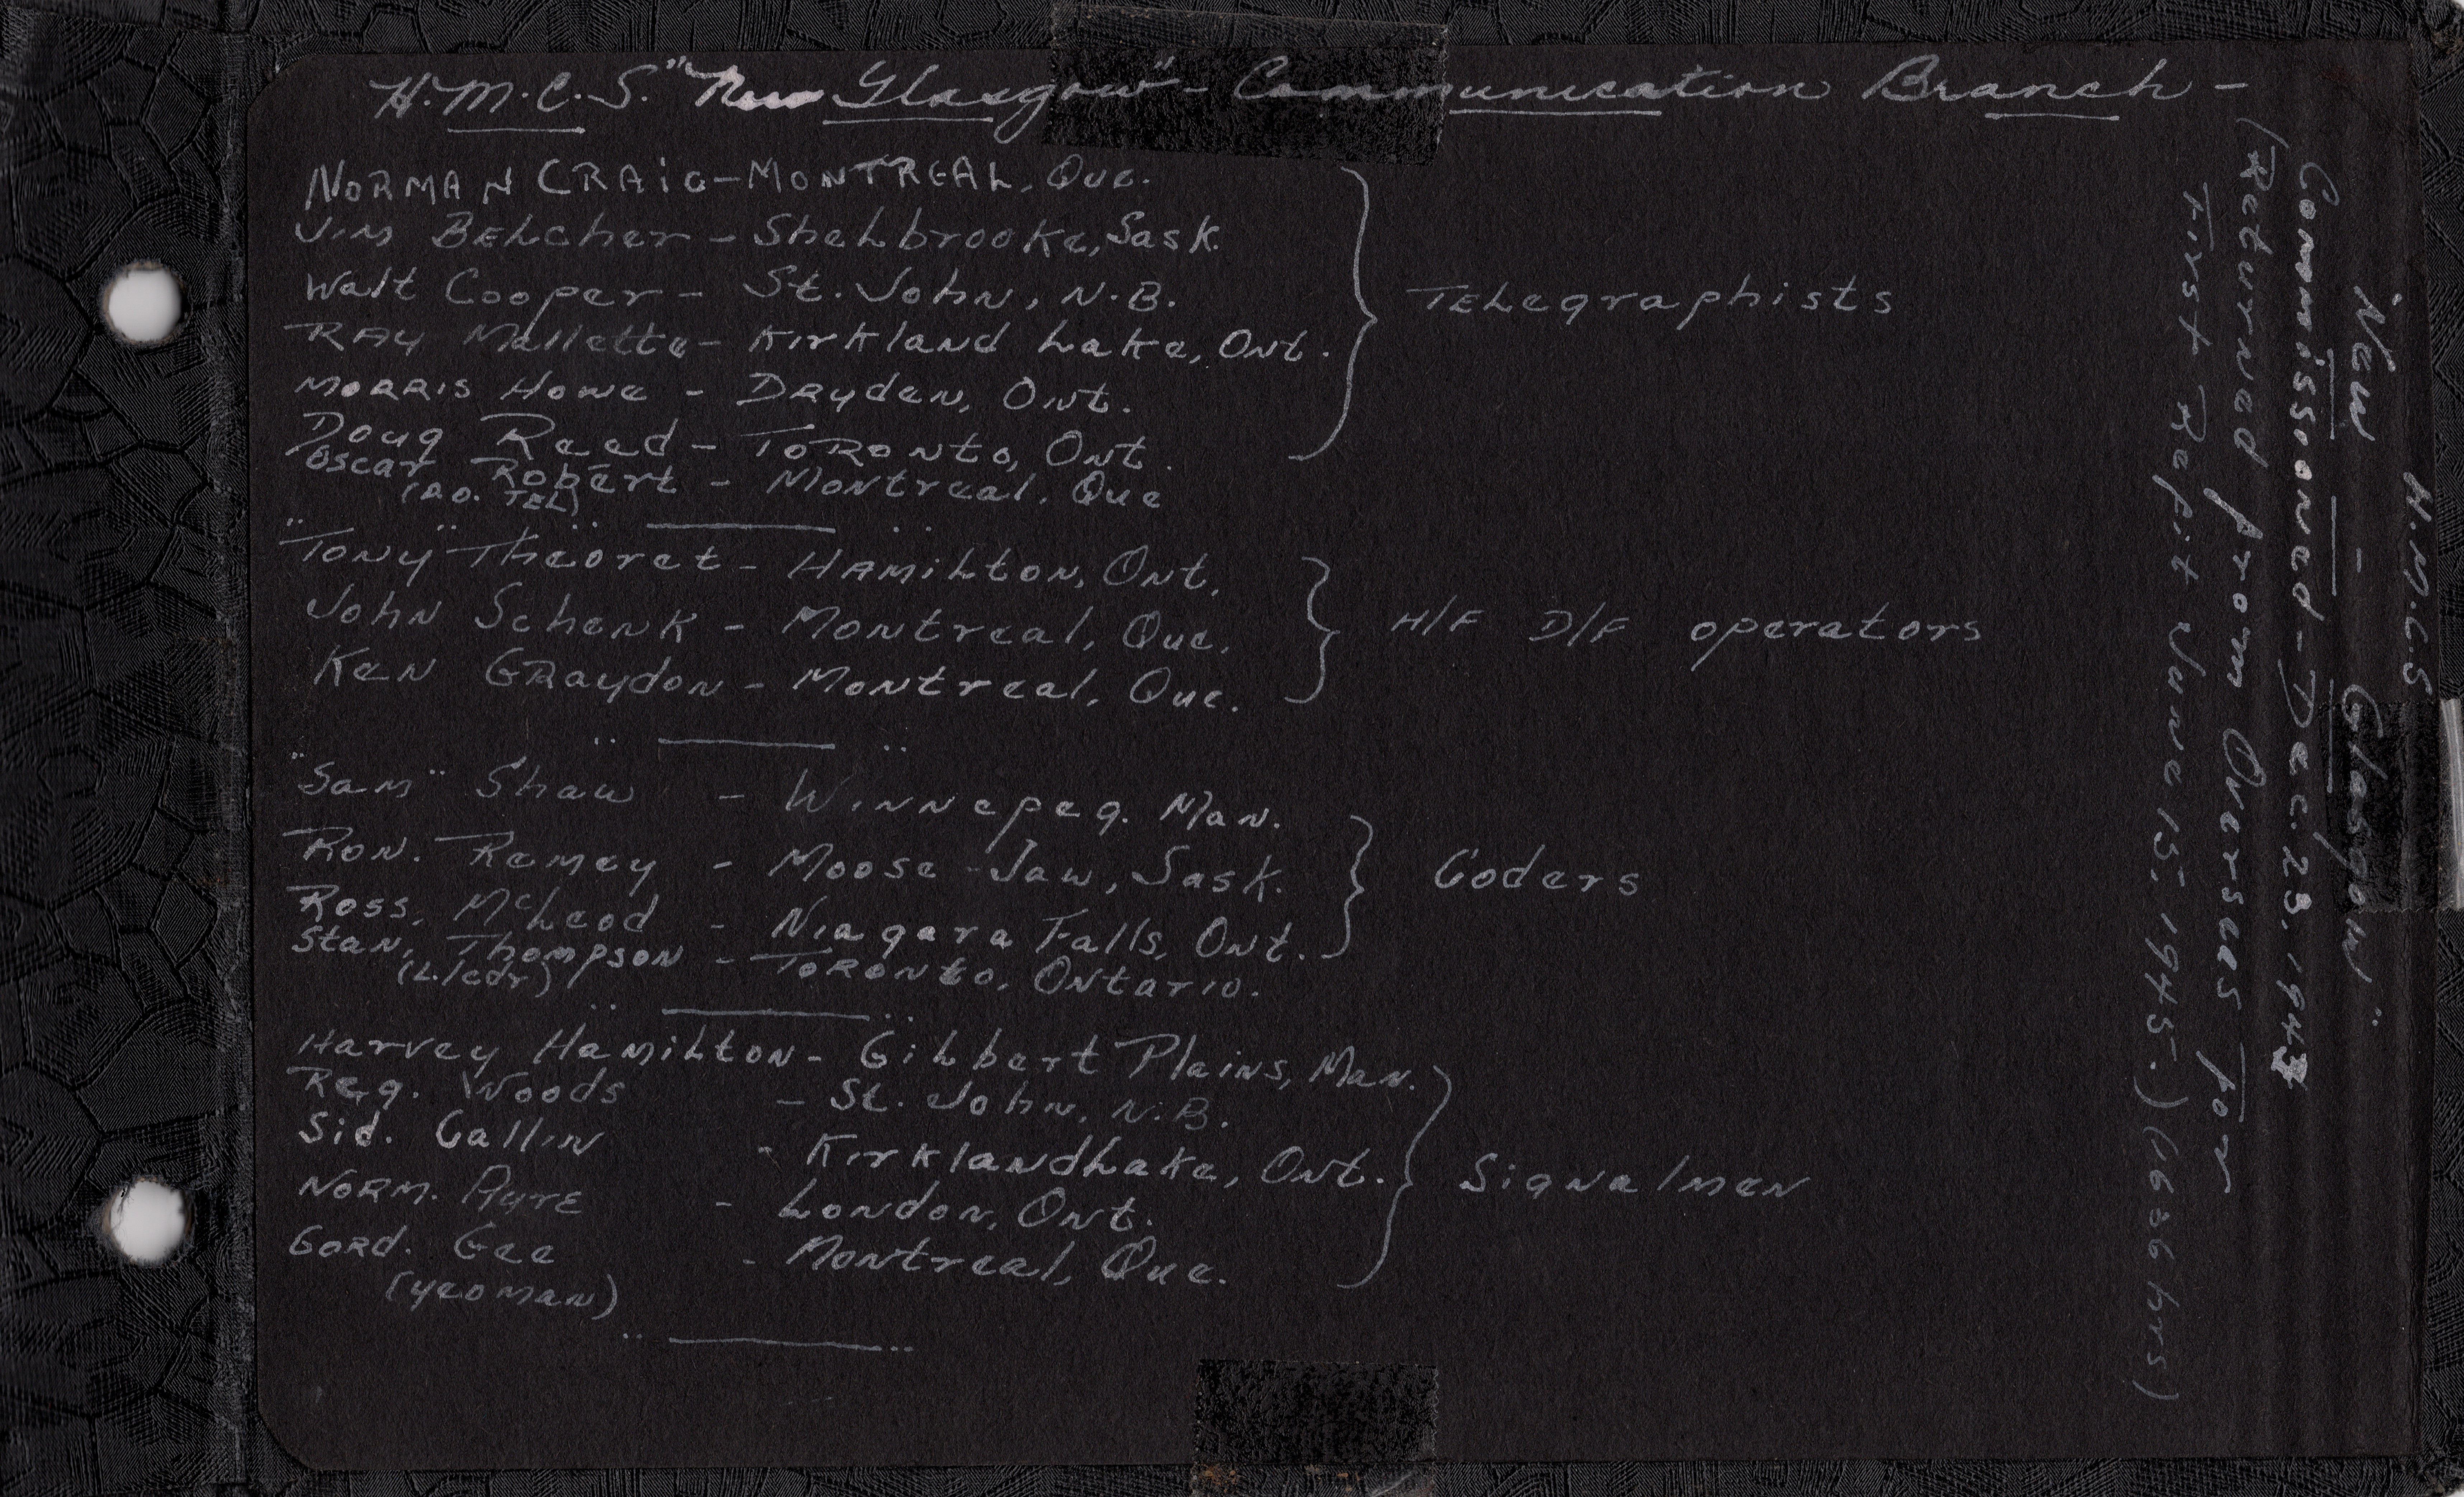 H.M.C.S. "New Glasgow" - Communication Branch -
NORMAN CRAIG - MONTREAL, Que.
Jim Belcher - Shellbrooke, Sask.
Walt Cooper - St. John, N.B.
RAY Mallette - Kirkland Lake, Ont.
MORRIS Howe - Dryden, Ont.
Doug Reed - TORONto, Ont.
Oscar Robert - Montreal, Que
(A.O. TEL)
"Tony" Theoret - HAMILtON, Ont.
John Schenk - Montreal, Que.
Ken GRaydon - Montreal, Que.
"Sam" Shaw - Winnepeg. Man.
Ron. Ramey - Moose-Jaw, Sask.
Ross. McLeod - Niagara Falls, Ont.
Stan. Thompson - TORONto, Ontario.
(L/cdr)
Harvey Hamilton - Gilbert Plains, Man.
Reg. Woods - St. John, N.B.
Sid. Gallin - Kirkland Lake, Ont.
NORM. Pyre - London, Ont.
GORD. Gee - Montreal, Que.
(yeoman)
Telegraphists
H/F D/F operators
Coders
Signalmen
H.M.C.S
"New - Glasgow"
Commissioned - Dec. 23, 1943
(Returned from Overseas For
First Refit June 15, 1945.) (0636 hrs)